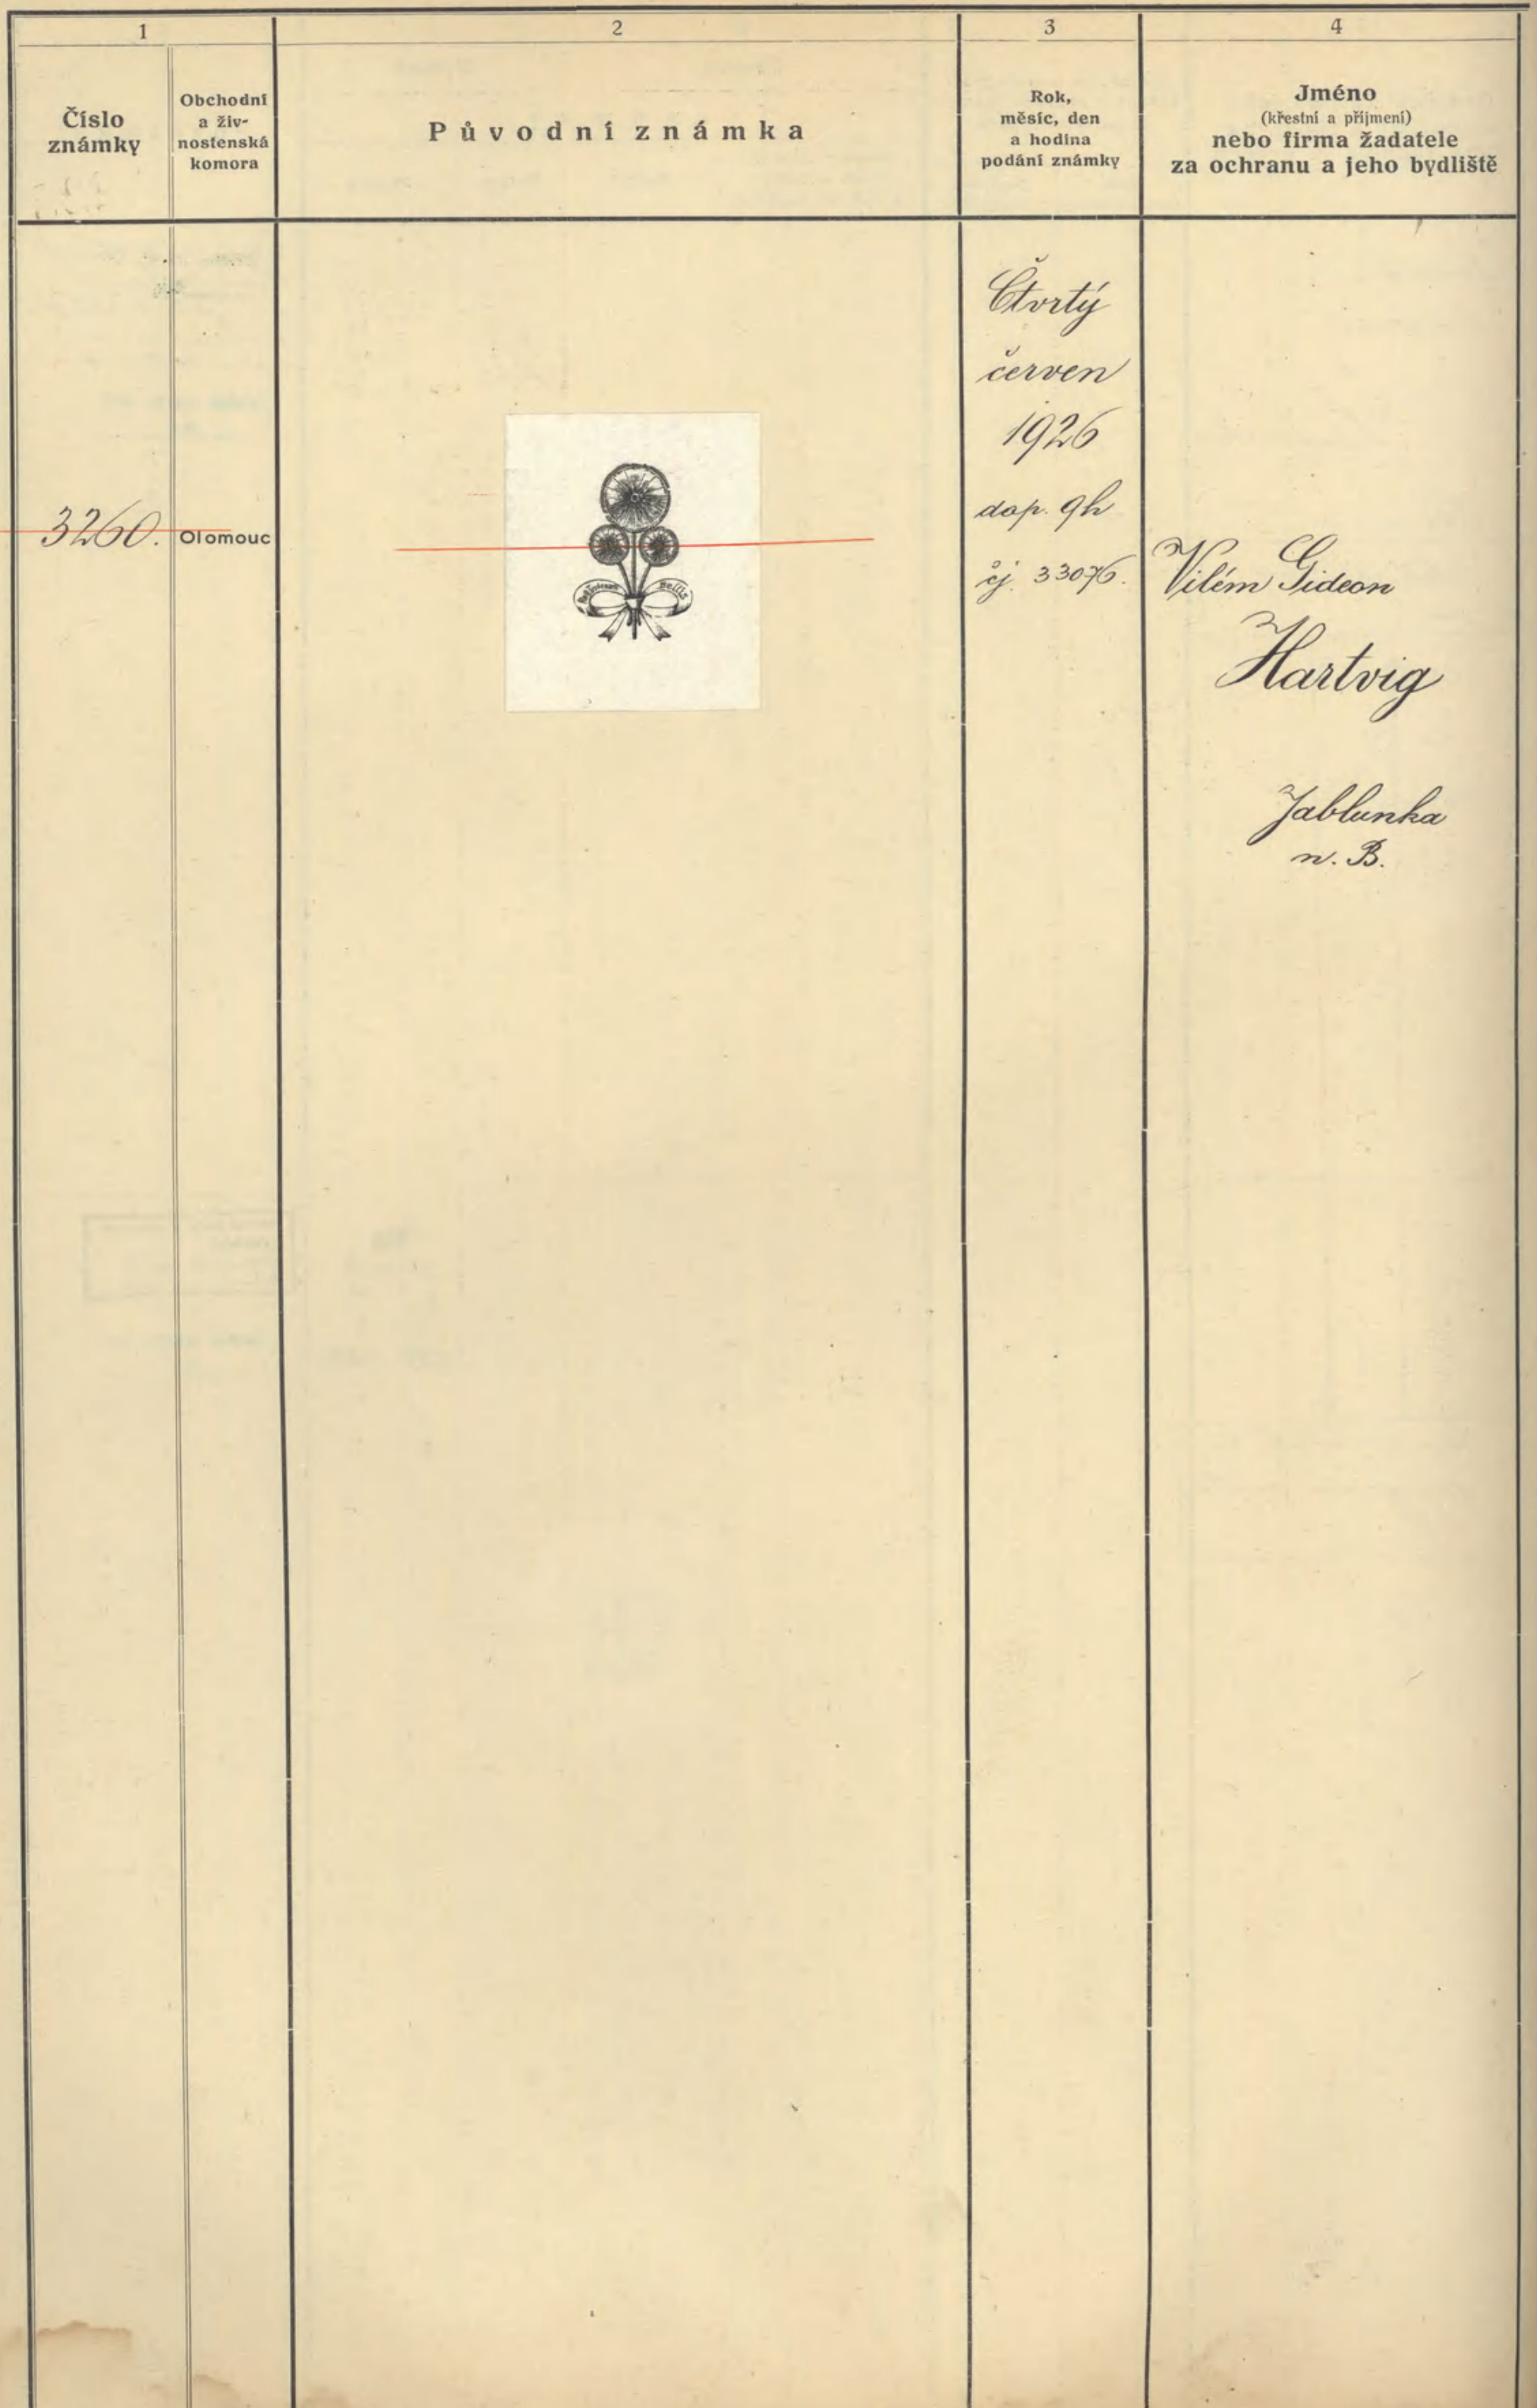 1
2
3
4
Číslo
známky
Obchodní
a živ-
nostenská
komora
Původní známka
Rok,
měsíc, den
a hodina
podání známky
Jméno
(křestní a příjmení)
nebo firma žadatele
za ochranu a jeho bydliště
3260.
Olomouc
Bellis
Čtvrtý
červen
1926
dop. 9h
čj. 33076.
Vilém Gideon
Hartvig
Jablunka
n. B.